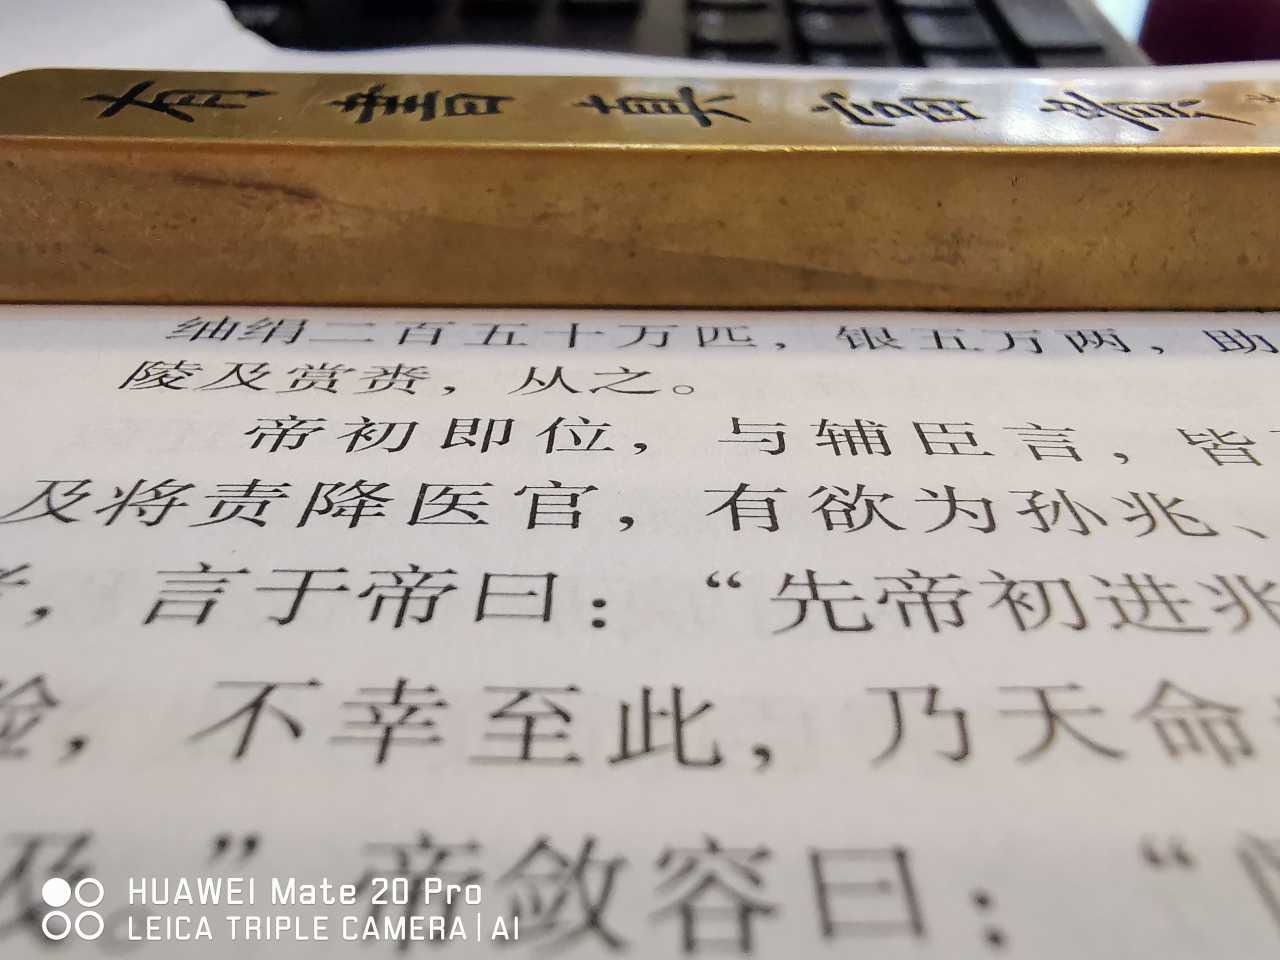 有書真富貴
䌷绢二百五十万匹，银五万两，助
陵及赏赉，从之。
帝初即位，与辅臣言，皆
及将责降医官，有欲为孙兆、
，言于帝曰：“先帝初进兆
验，不幸至此，乃天命
及。”帝敛容曰：“
HUAWEI Mate 20 Pro
LEICA TRIPLE CAMERA | AI